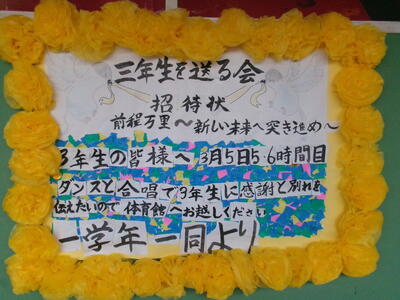 三年生を送る会
招待状
前程万里～新しい未来へ突き進め～
3年生の皆様へ 3月5日5,6時間目
ダンスと合唱で3年生に感謝と別れを
伝えたいので体育館へお越しください
一学年一同より